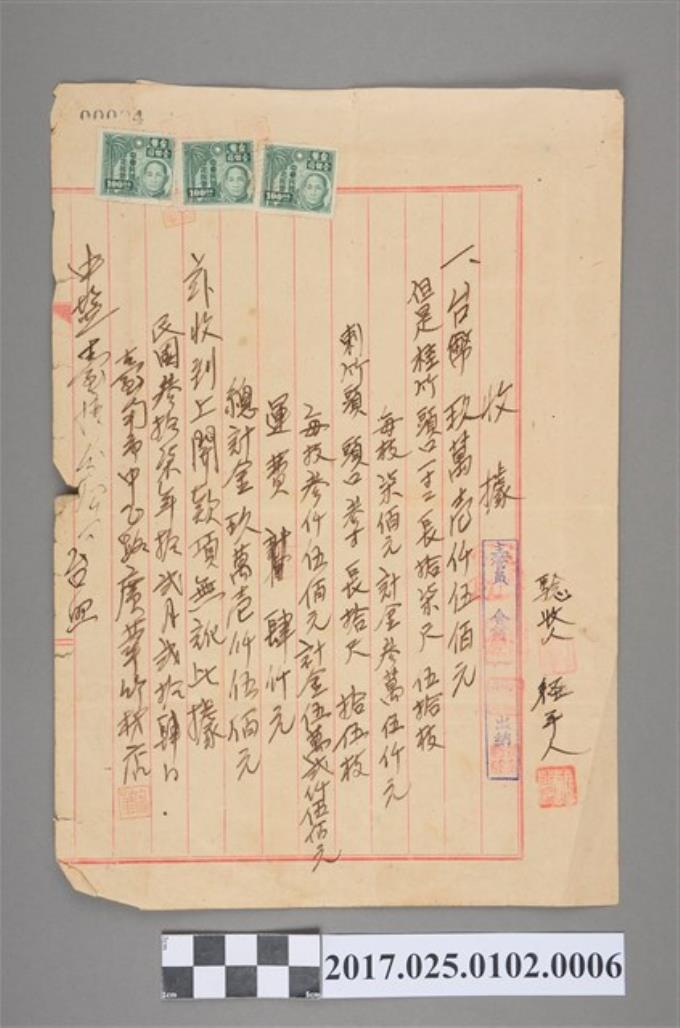 驗收人
經手人
收據
一、台幣玖萬壹仟伍佰元
但是桂竹頭口二寸長拾柒尺 伍拾枝
每枝柒佰元計金叁萬伍仟元
刺竹頭 頭口叁寸長拾尺 拾伍枝
每枝叁仟伍佰元計金伍萬貳仟伍佰元
運費 計 肆仟元
總計金玖萬壹仟伍佰元
計收到上開款項無訛此據
民國叁拾柒年拾貳月貳拾肆日
臺南市中正路廣華竹材店
台照
出納
100
100
100
2017.025.0102.0006